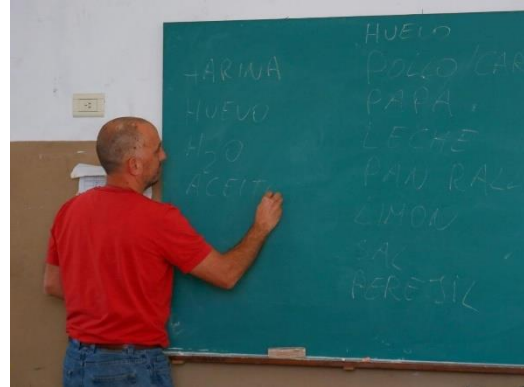 HARINA
HUEVO
H2O
ACEIT
HUEVO
POLLO/CAR
PAPA.
LECHE
PAN RALL
LIMON
SAL
PEREJIL